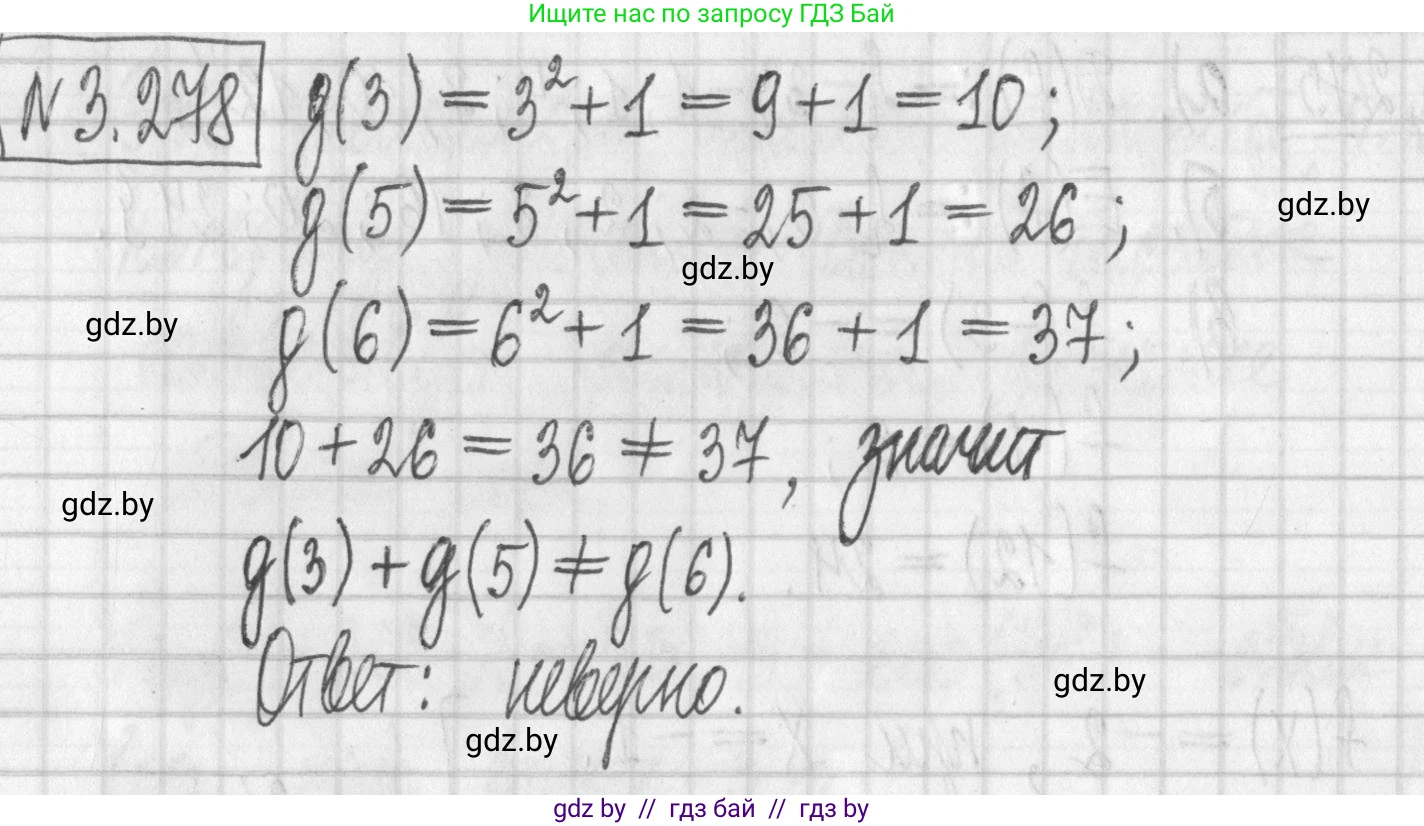 Ищите нас по запросу ГДЗ Бай
№ 3.278 g(3) = 3² + 1 = 9 + 1 = 10 ;
g(5) = 5² + 1 = 25 + 1 = 26 ;
gdz.by
gdz.by
g(6) = 6² + 1 = 36 + 1 = 37 ;
gdz.by
10 + 26 = 36 ≠ 37, значит
gdz.by
g(3) + g(5) ≠ g(6).
Ответ: неверно.
gdz.by
gdz.by
gdz by // гдз бай // гдз by